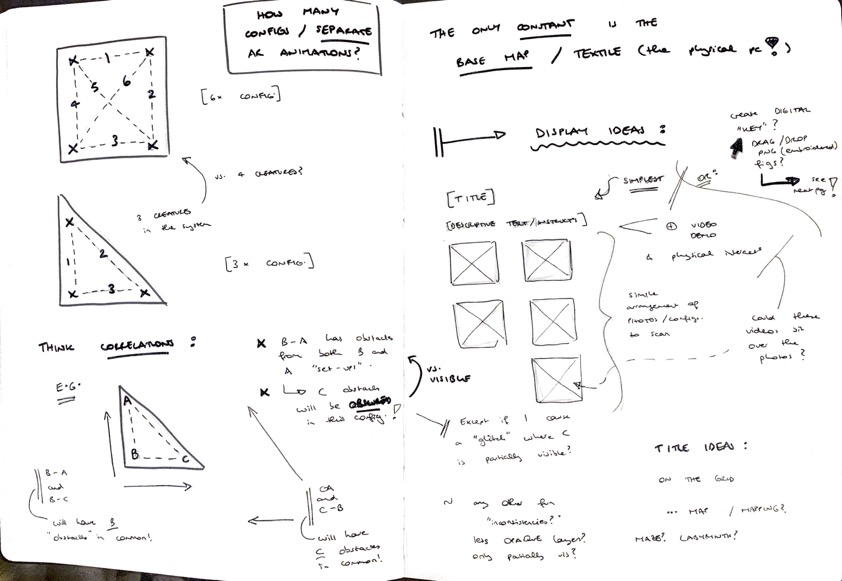 HOW MANY
CONFIGS / SEPARATE
AR ANIMATIONS?
1
5
6
4
2
3
[6x CONFIG.]
vs. 4 CREATURES?
3 CREATURES
in the system
1
2
3
[3x CONFIG.]
THINK CORRELATIONS:
E.G.
A
B
C
B-A
and
B-C
will have B
"obstacles" in common!
X B-A has obstacles
from both B and
A "set-up".
X C obstacles
will be OBSCURED
in this config.!
and
C-B
will have
C obstacles
in common!
THE ONLY CONSTANT IS THE
BASE MAP / TEXTILE (the physical pc!)
DISPLAY IDEAS:
create DIGITAL
"KEY"?
DRAG/DROP
PNG (embroidered)
figs?
see
next pg!
SIMPLEST
OR:
[TITLE]
[DESCRIPTIVE TEXT/INSTRUCTS]
+ VIDEO
DEMO
& physical
simple
arrangement of
PHOTOS/configs.
to scan
could these
videos sit
over the
photos?
vs.
VISIBLE
Except if I cause
a "glitch" where C
is partially visible?
~ any other fun
"inconsistencies?"
less OPAQUE layer?
only partially vis?
TITLE IDEAS:
ON THE GRID
... MAP / MAPPING?
MAZE? LABYRINTH?